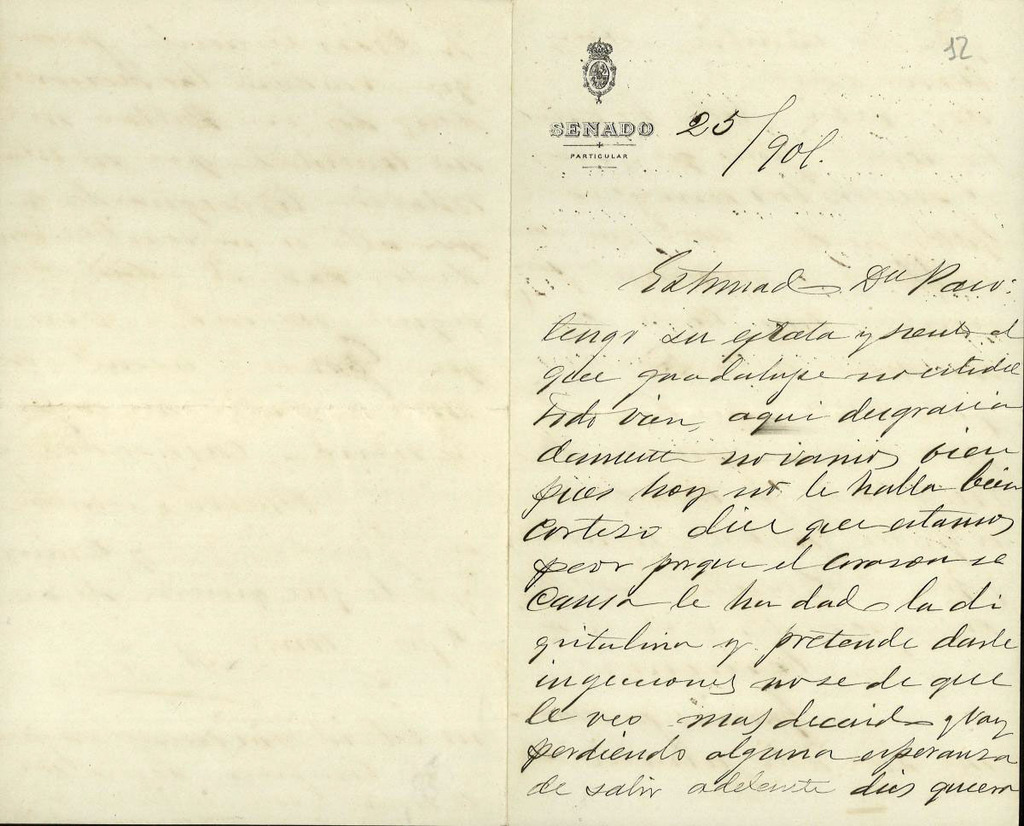 12
SENADO
PARTICULAR
25/901.
Estimado Dn Paco:
tengo su esctala y siento el
que Guadalupe no esté del
todo vien, aqui desgracia
damente no vamos bien
pues hoy no le halla bien
Cortezo dice que estamos
peor porque el corason se
cansa le ha dado la di
gitalina y pretende darle
ingecciones no se de que
le veo mas decaido y voy
perdiendo alguna esperanza
de salir adelante dios quiera